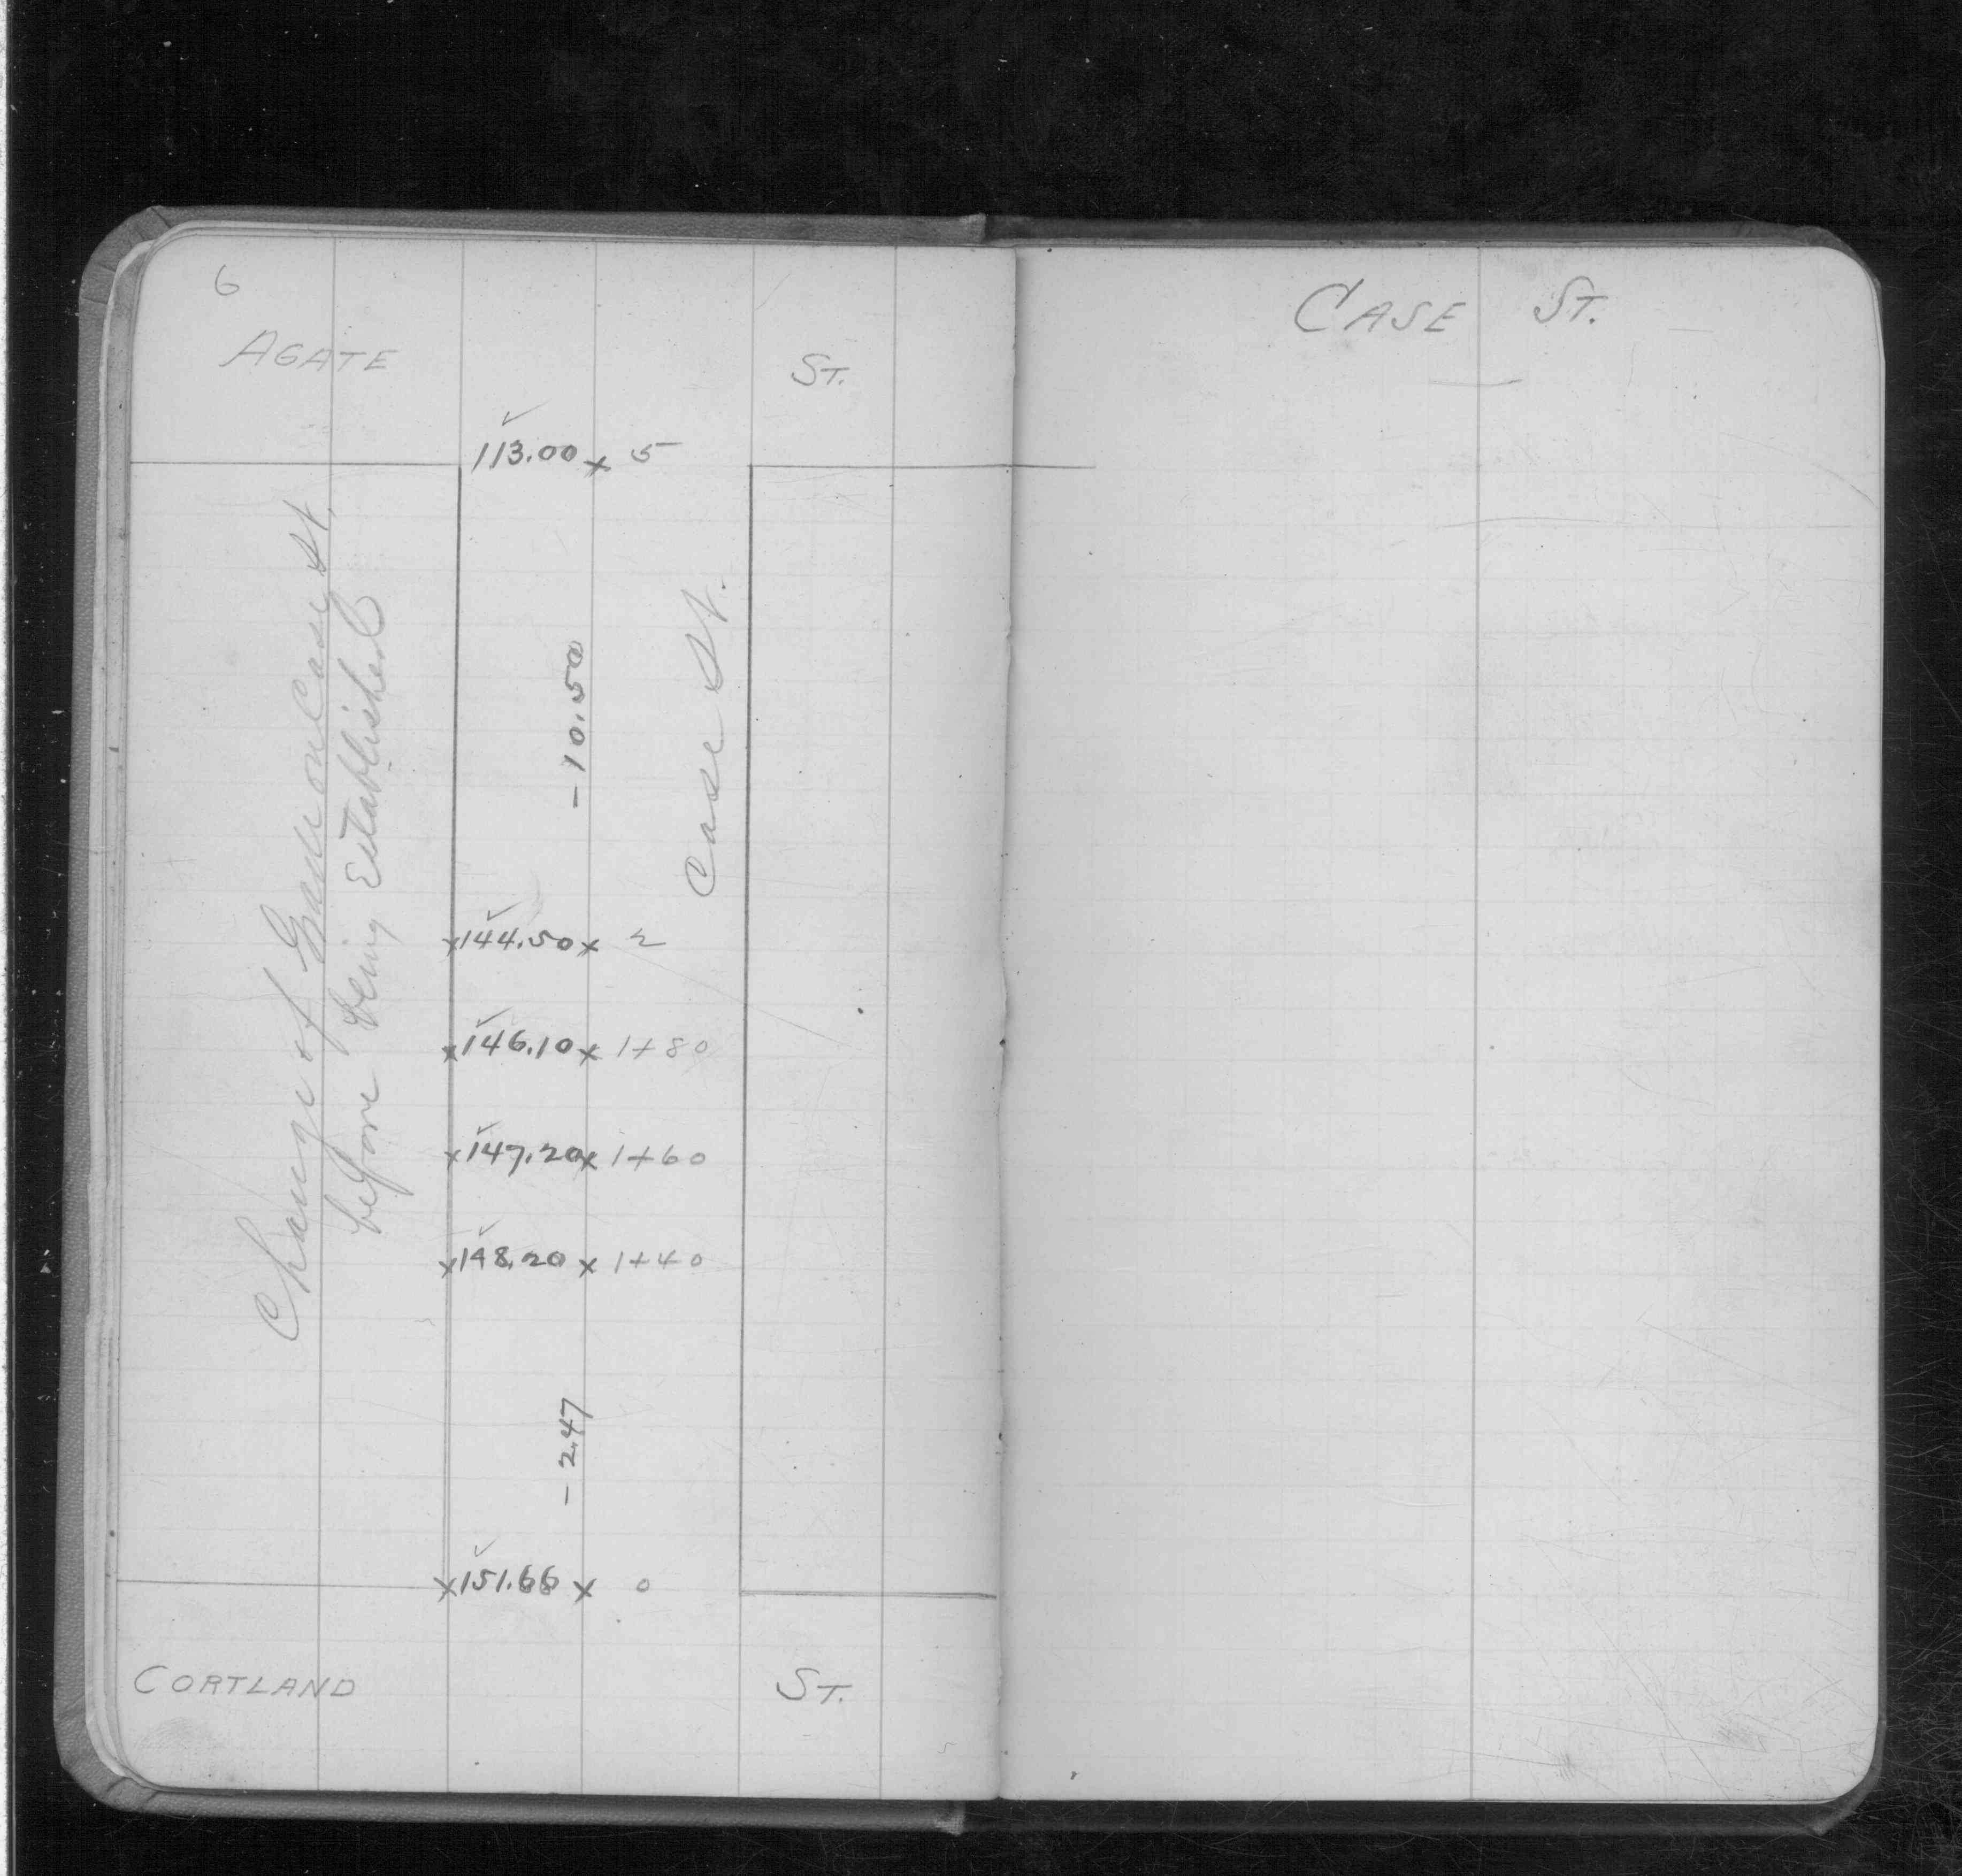 6
CASE ST.
AGATE ST.
113.00 x 5
Change of Grade on Case St.
before being Established
- 10.50
Case St.
x 144.50 x 2
x 146.10 x 1+80
x 147.20 x 1+60
x 148.20 x 1+40
- 2.47
x 151.66 x 0
CORTLAND ST.